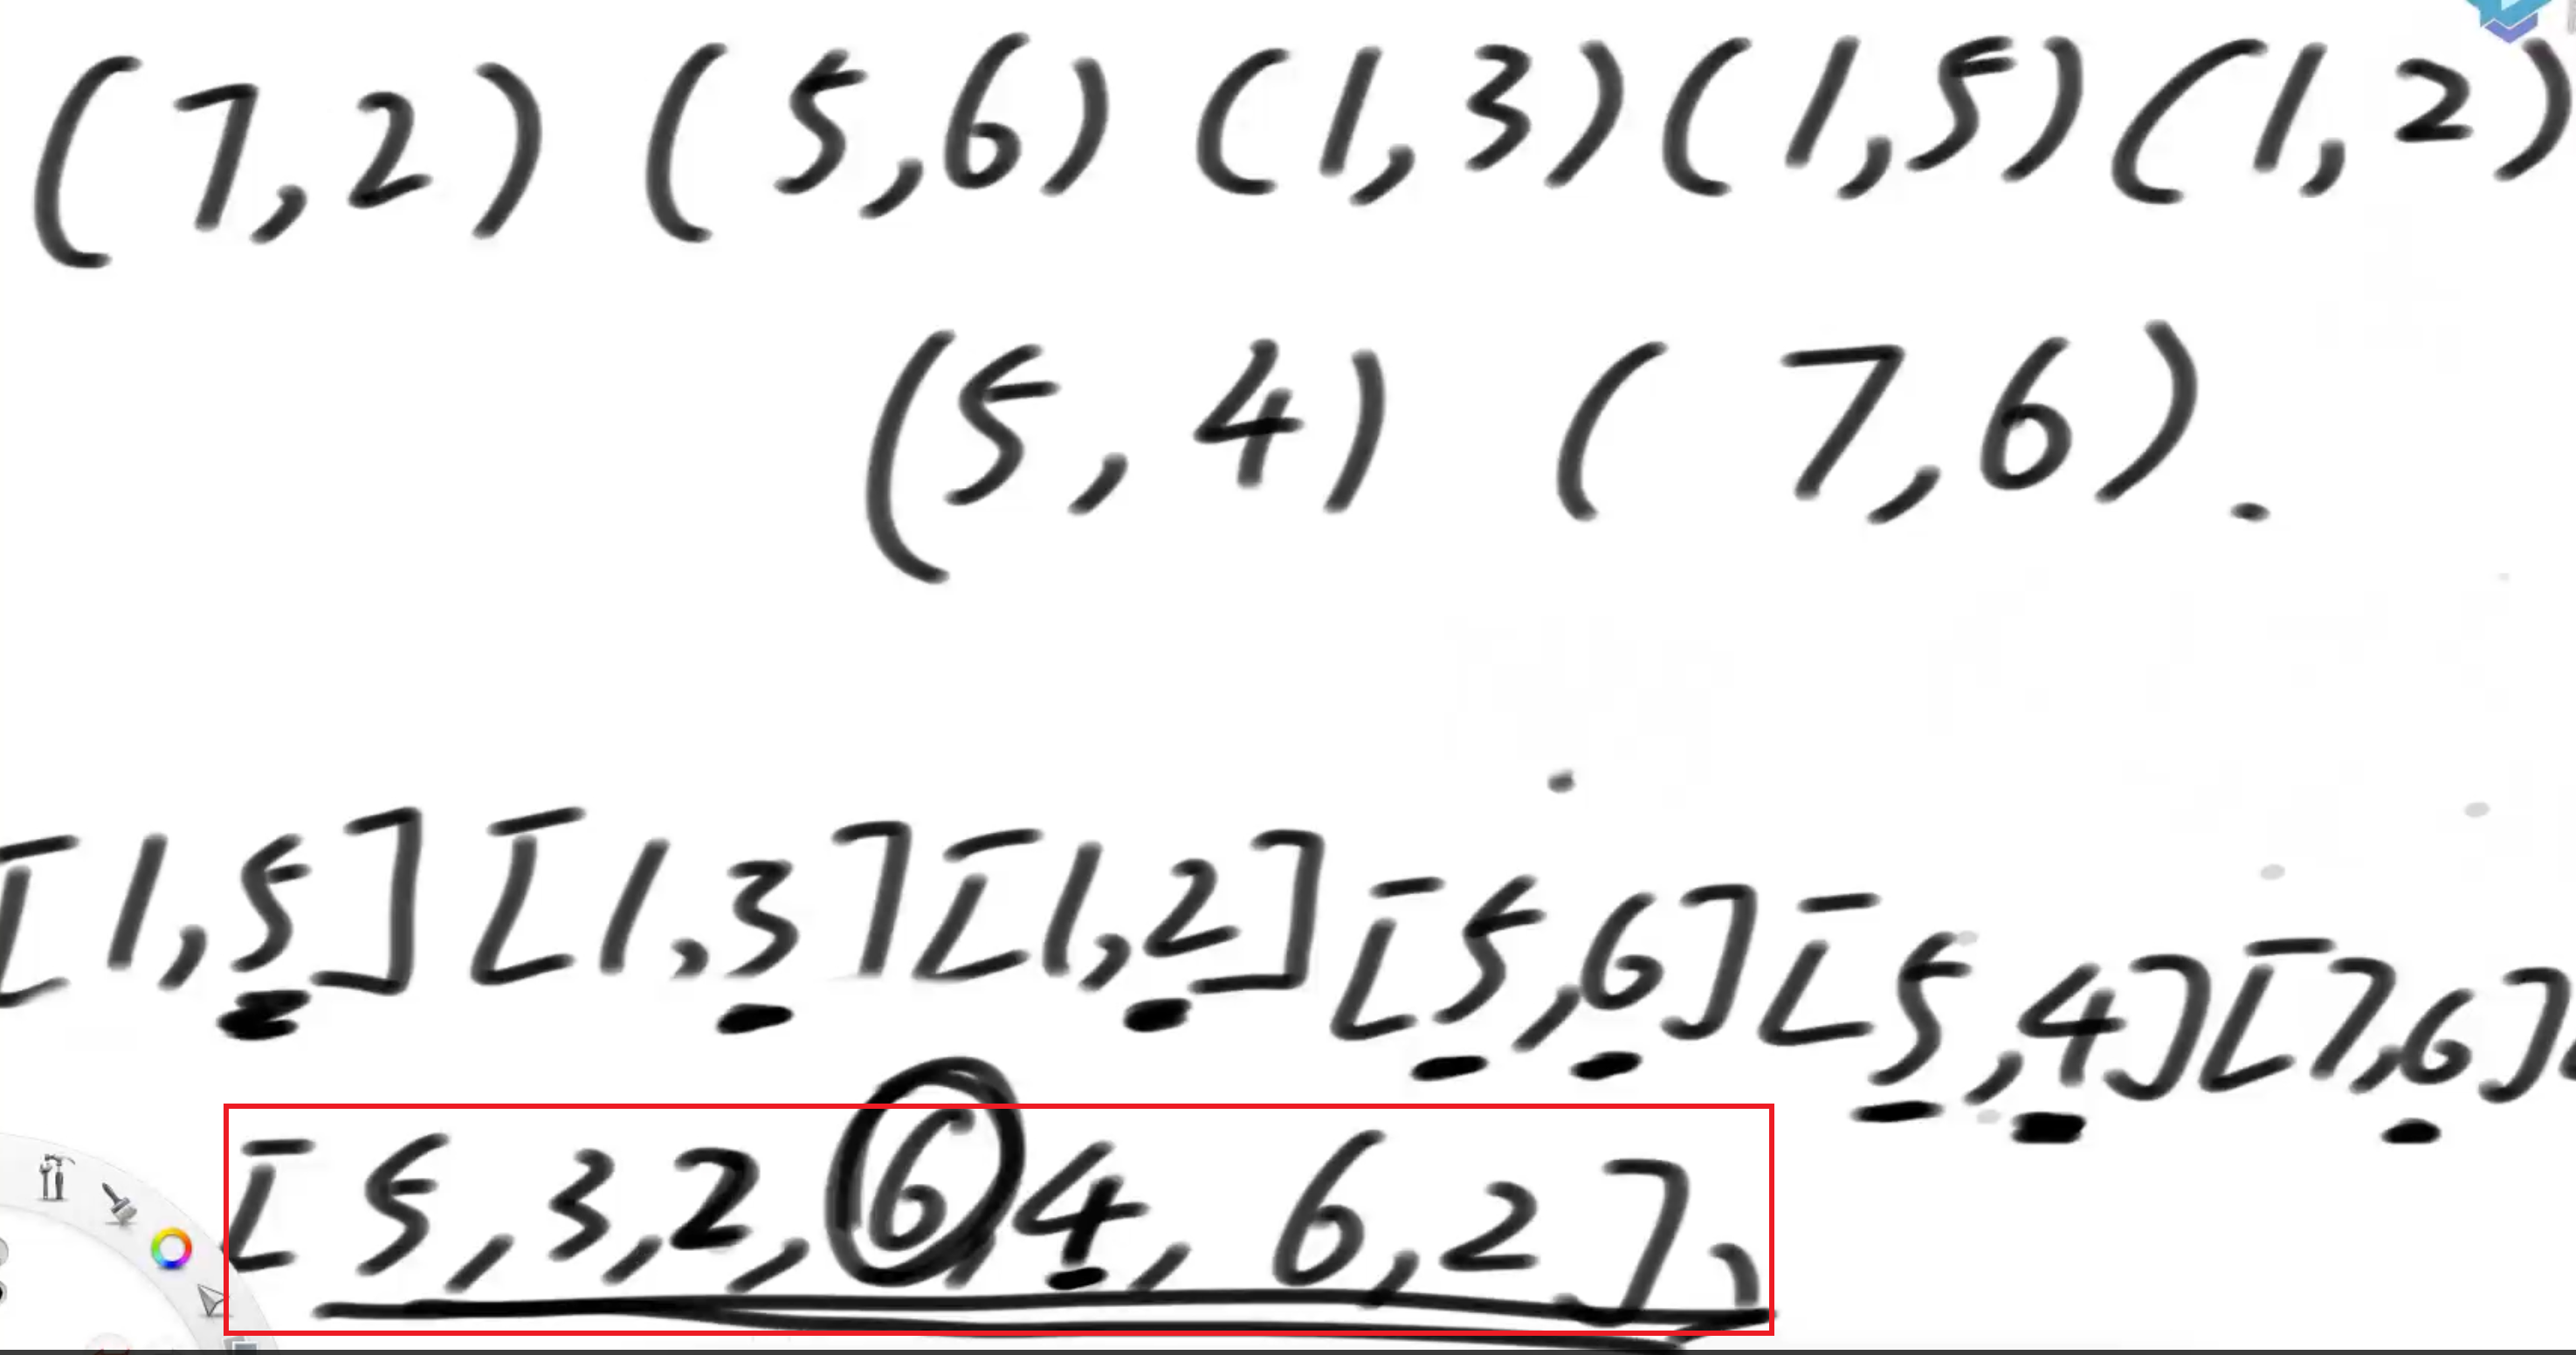 (7,2) (5,6) (1,3) (1,5) (1,2)
(5,4) (7,6).
[1,5] [1,3] [1,2] [5,6] [5,4] [7,6]
[5,3,2,6,4,6,2]